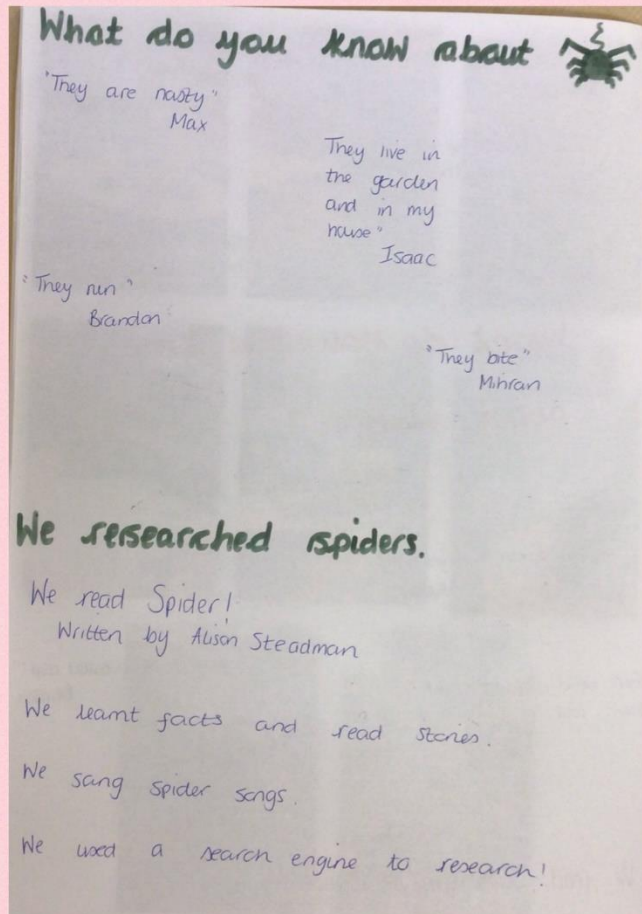 What do you know about
"They are nasty"
Max
They live in
the garden
and in my
house"
Isaac
"They run"
Brandon
"They bite"
Mihran
We researched spiders.
We read Spider!
Written by Alison Steadman
We learnt facts and read stories.
We sang spider songs.
We used a search engine to research!